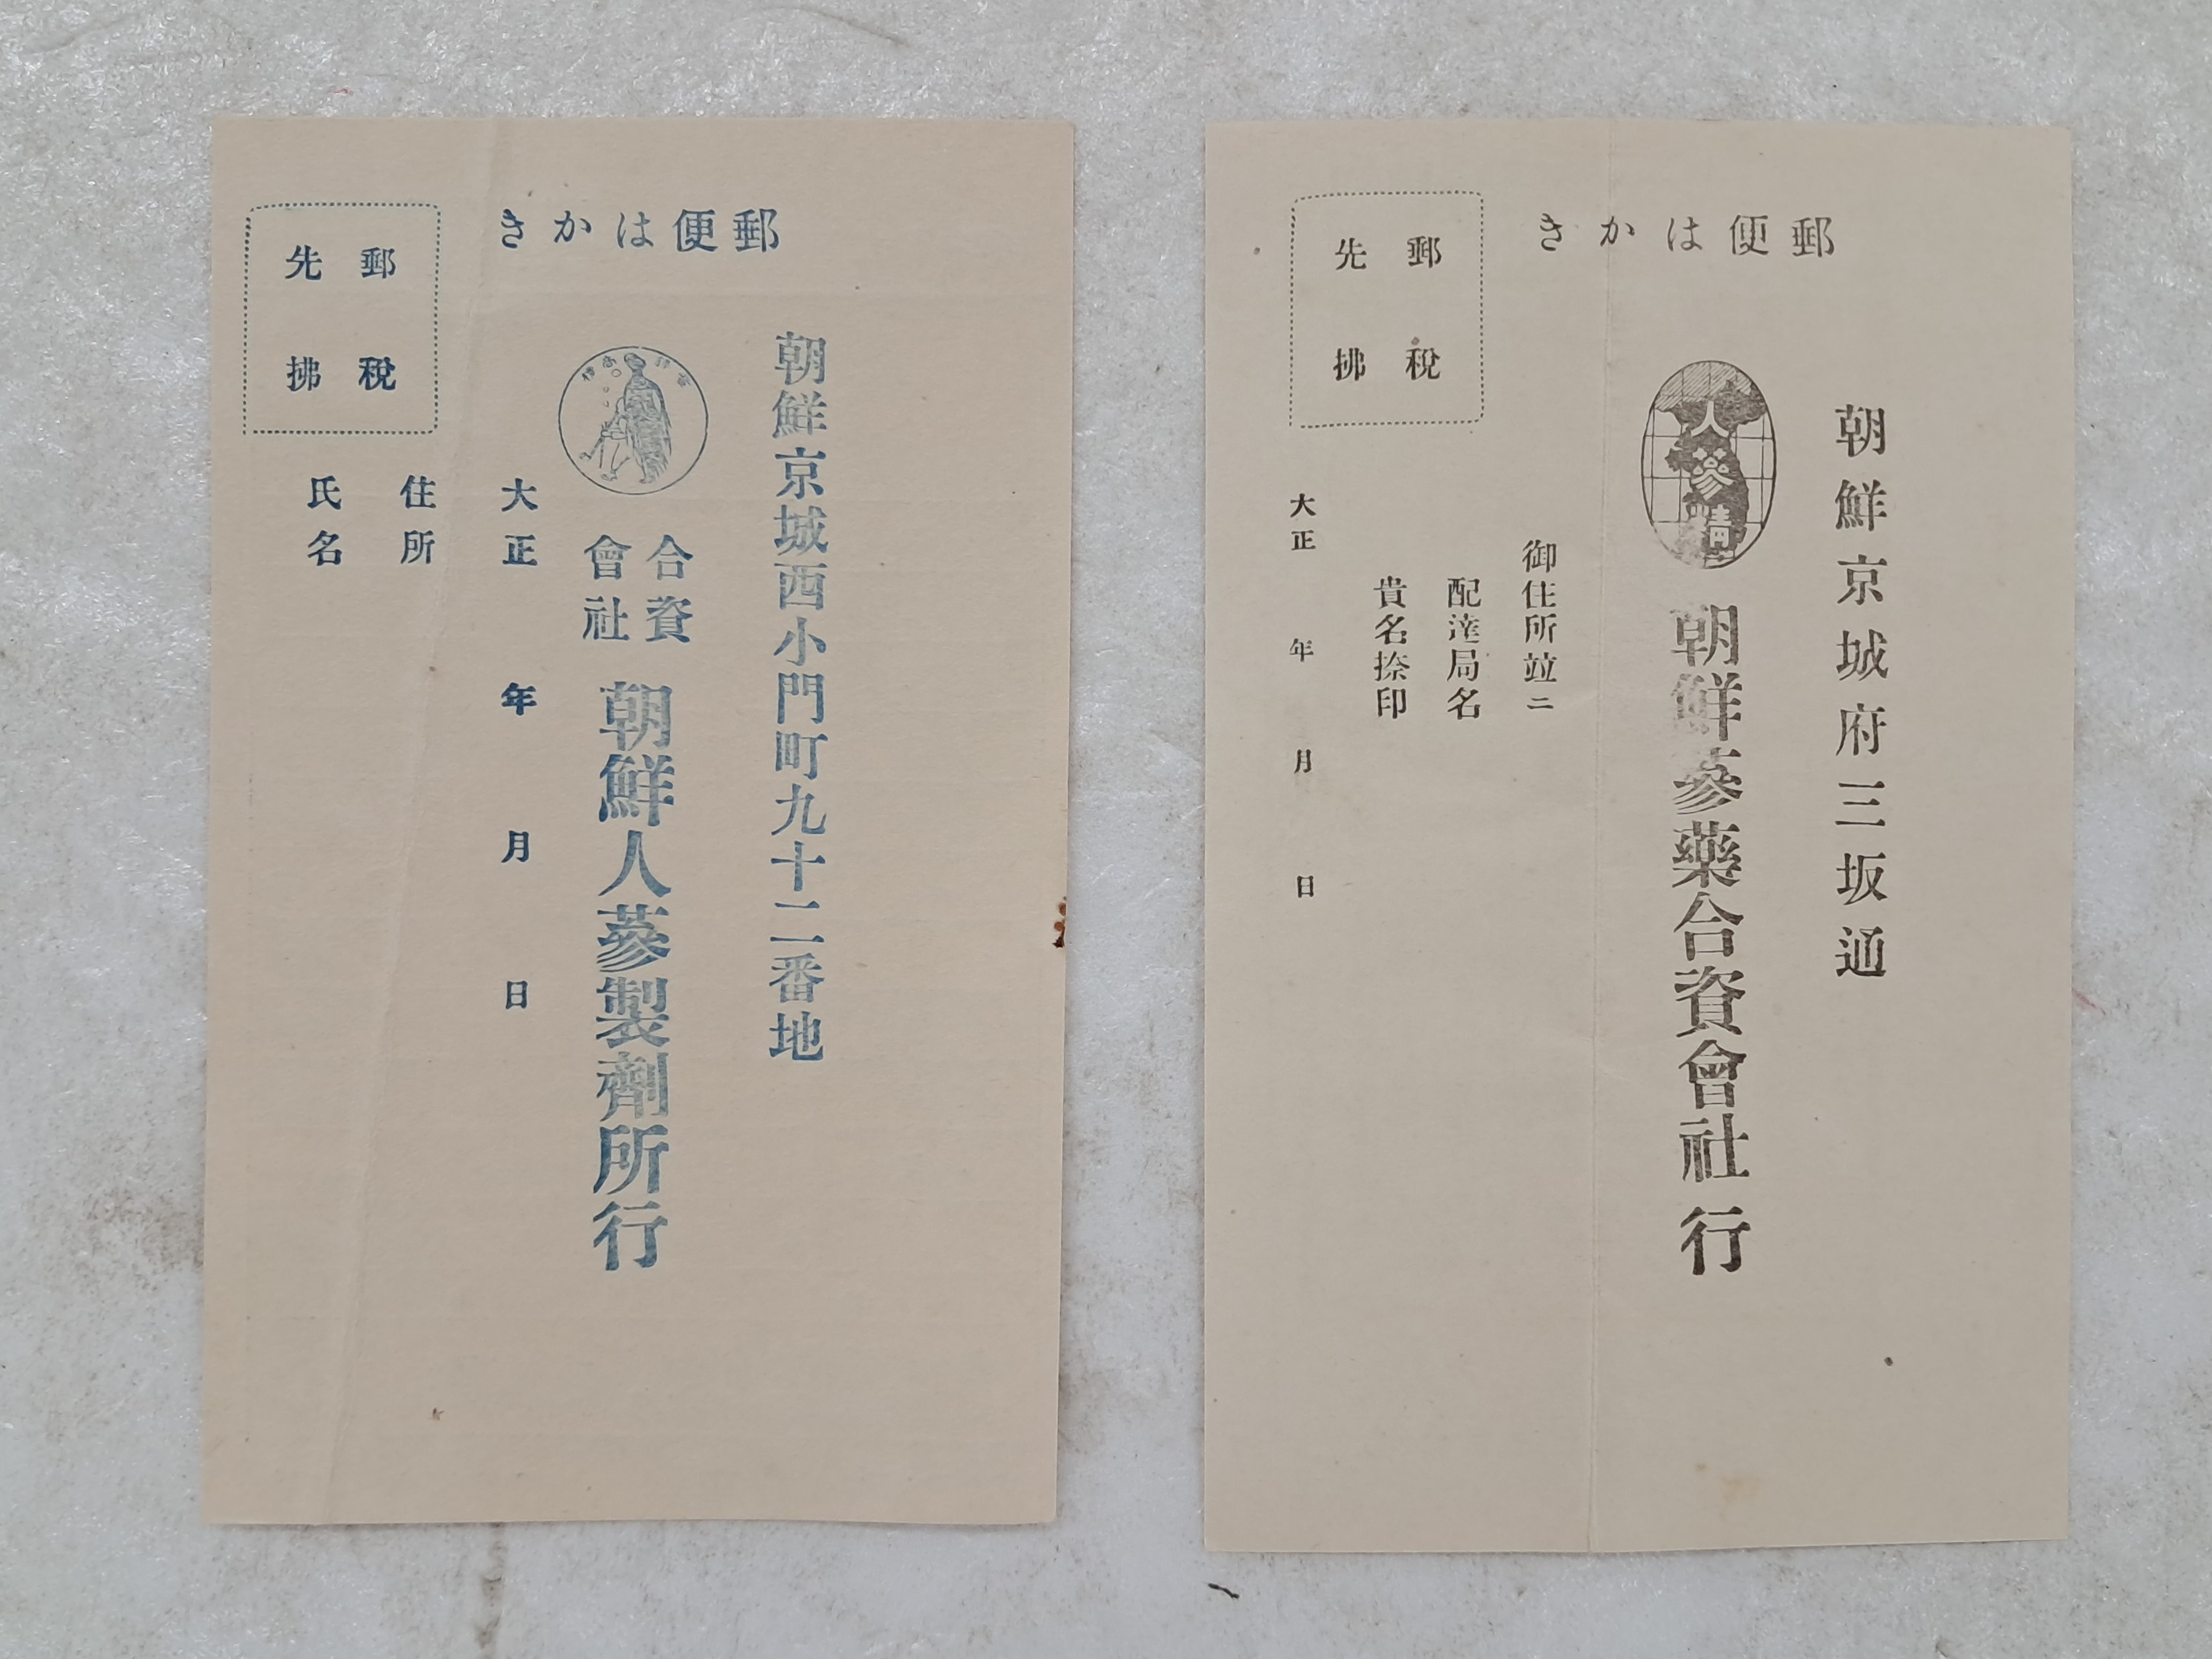 郵便はかき
郵税
先拂
朝鮮京城西小門町九十二番地
合資
會社
朝鮮人蔘製劑所行
大正 年 月 日
住所
氏名
郵便はかき
郵税
先拂
朝鮮京城府三坂通
人蔘精
朝鮮蔘藥合資會社行
御住所竝ニ
配達局名
貴名捺印
大正 年 月 日